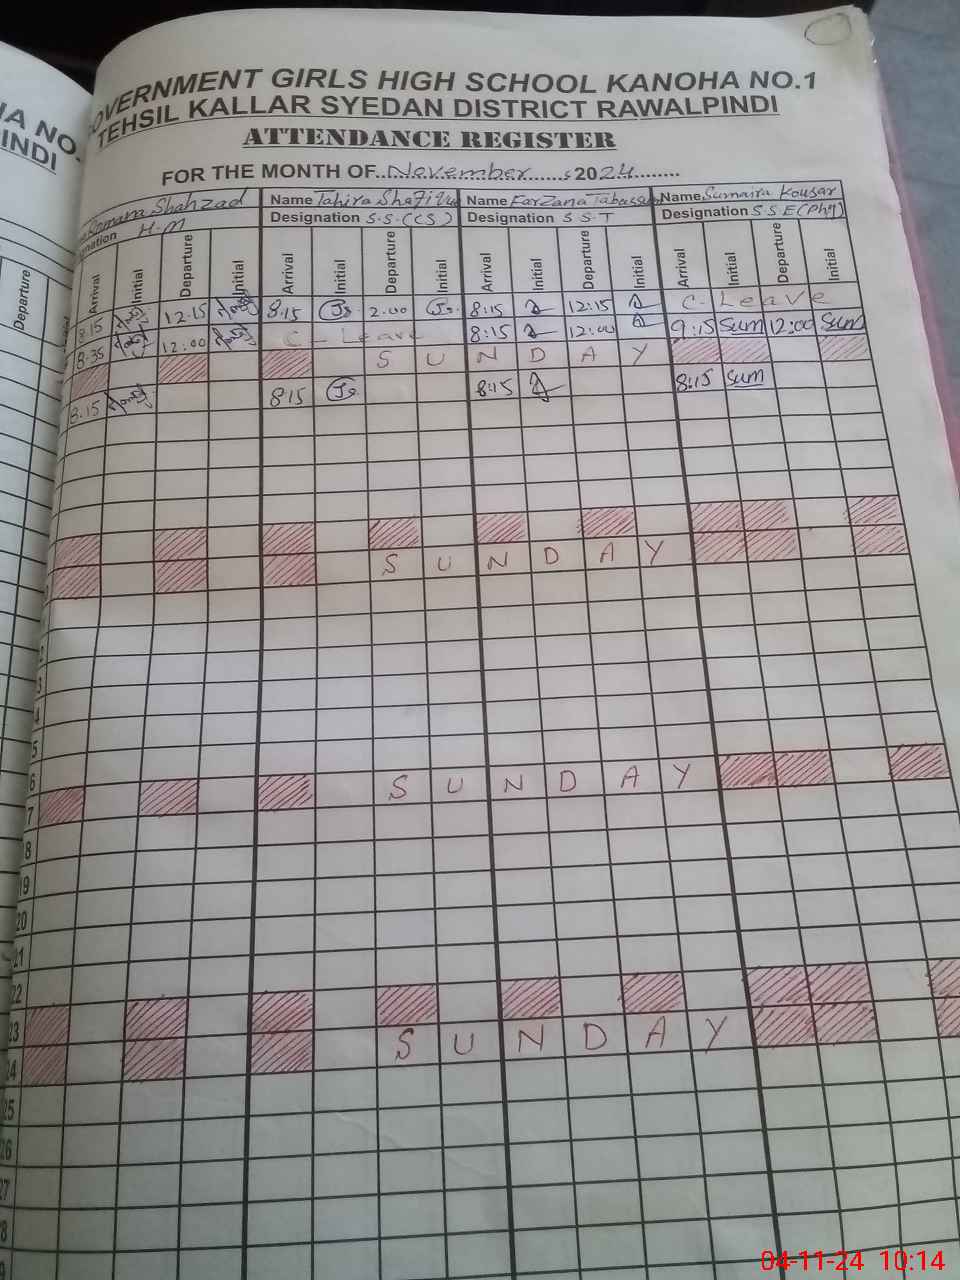 IA NO.
INDI
OVERNMENT GIRLS HIGH SCHOOL KANOHA NO.1
TEHSIL KALLAR SYEDAN DISTRICT RAWALPINDI
ATTENDANCE REGISTER
FOR THE MONTH OF..November......2024........
Shahzad Name Tahira Name Farzana Tabassum Name Sumaira Kousar
nation H.M Designation S.S.(CS) Designation S S.T Designation S S E(Phy)
Departure Arrival Initial Departure Initial Arrival Initial Departure Initial Arrival Initial Departure Initial Arrival Initial Departure Initial
8.15 12.15 8.15 2.00 8:15 12:15 C. Leave
8.35 12.00 C - Leave 8:15 12:00 9:15 Sum 12:00 Sum
S U N D A Y
8.15 8.15 8:15 8:15 Sum
S U N D A Y
2
3
4
5
6
S U N D A Y
7
8
19
20
21
22
23
S U N D A Y
24
25
26
27
8
04-11-24 10:14